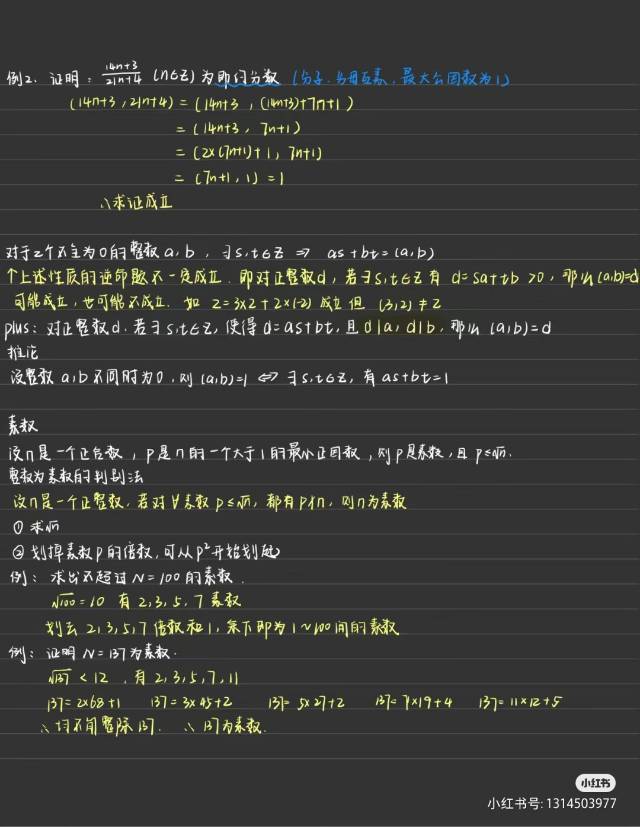 例2. 证明: (14n+3)/(21n+4) (n∈Z) 为即约分数 (分子. 分母互素, 最大公因数为1)
(14n+3, 21n+4) = (14n+3, (14n+3)+7n+1)
= (14n+3, 7n+1)
= (2×(7n+1)+1, 7n+1)
= (7n+1, 1) = 1
∴求证成立
对于2个不全为0的整数a,b, ∃s,t∈Z ⇒ as+bt=(a,b)
↑上述性质的逆命题不一定成立. 即对正整数d, 若∃s,t∈Z有 d=sa+tb>0, 那么(a,b)=d
可能成立, 也可能不成立. 如 2=3×2+2×(-2) 成立但 (3,2)≠2
plus: 对正整数d. 若∃s,t∈Z, 使得d=as+bt, 且d|a, d|b, 那么(a,b)=d
推论
设整数a,b不同时为0, 则(a,b)=1 ⇔ ∃s,t∈Z, 有as+bt=1
素数
设n是一个正合数, p是n的一个大于1的最小正因数, 则p是素数, 且p≤√n.
整数为素数的判别法
设n是一个正整数, 若对∀素数p≤√n, 都有p∤n, 则n为素数
① 求√n
② 划掉素数p的倍数, 可从p²开始划起
例: 求出不超过N=100的素数.
√100=10 有2,3,5,7素数
划去2,3,5,7倍数和1, 余下即为1~100间的素数
例: 证明N=137为素数.
√137<12, 有2,3,5,7,11
137=2×68+1 137=3×45+2 137=5×27+2 137=7×19+4 137=11×12+5
∴均不能整除137. ∴137为素数.
小红书
小红书号: 1314503977